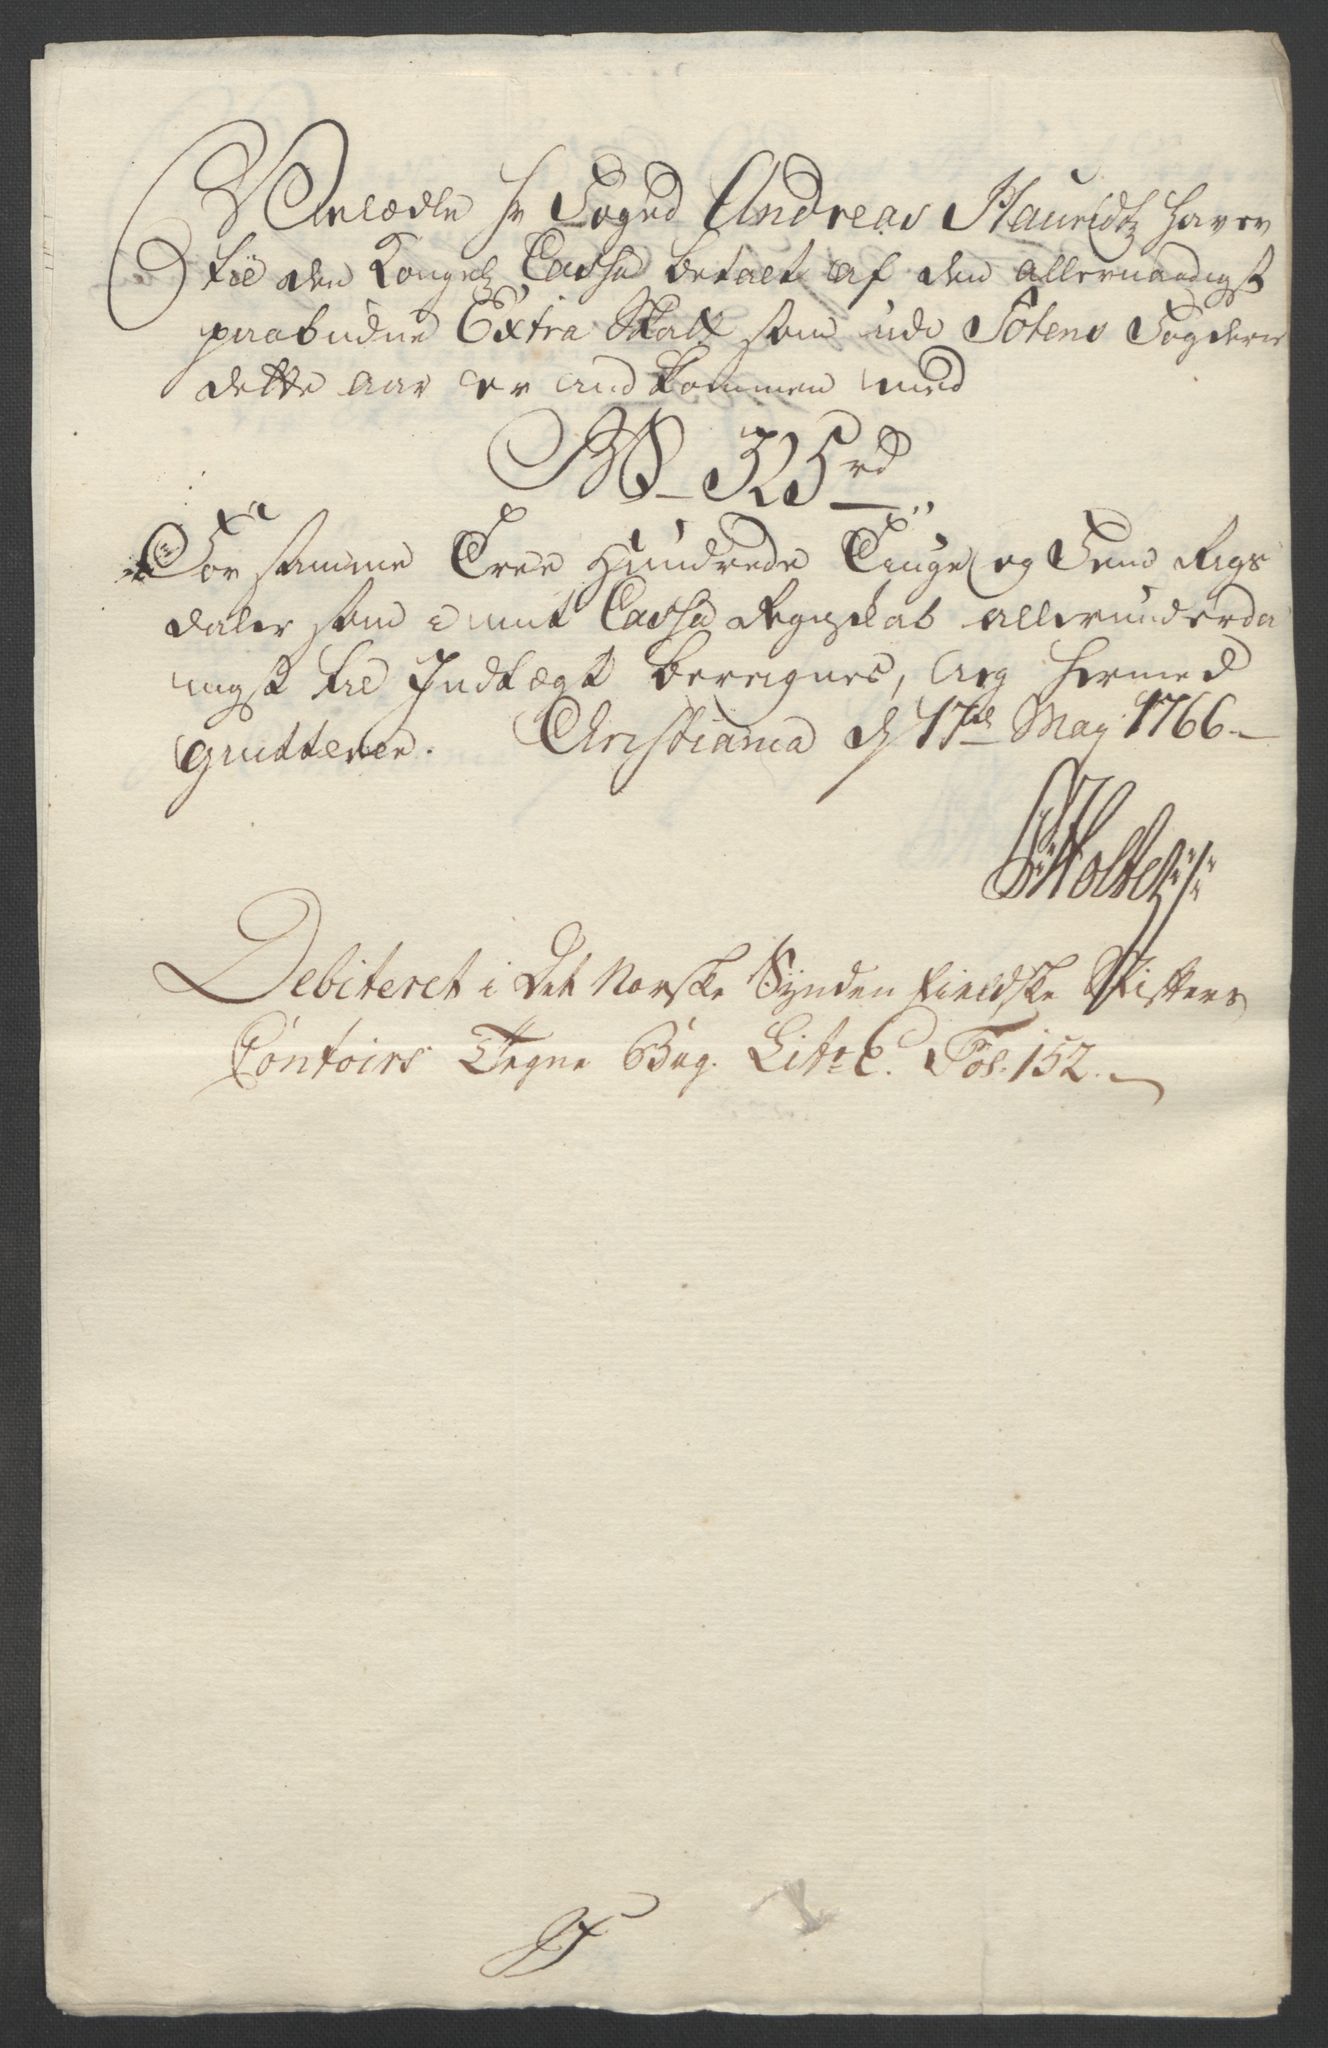 Velædle Hr Foged Andreas Hauridtz haver
til den Kongel. Cassa betalt af den allernaadigst
paabudne Extra Skatt som udi Totens Fogderie
dette aar er indkommen med
325 rd
For samme Tree Hundrede Tiuge og Fem Rigs
daler som i mit Cassa Regnskab allerunderda
nigst til Indtægt bereignes, hermed
quitterer. Christiania d 17de May 1766
Holte
Debiteret i Det Norske Synden fieldske Stifters
Contoirs Tegne Bog. Litr C. Fol. 152.